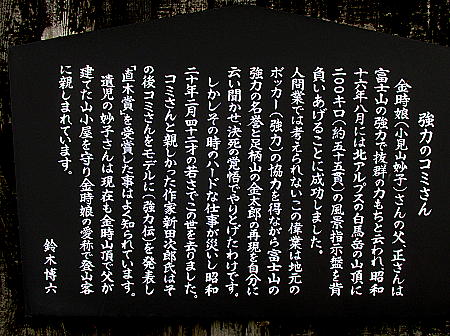 強力のコミさん
金時娘(小見山妙子)さんの父、正さんは
富士山の強力で抜群の力もちと云われ、昭和
十六年八月には北アルプスの白馬岳の山頂に
二〇〇キロ(約五十五貫)の風景指示盤を背
負いあげることに成功しました。
人間業では考えられないこの偉業は地元の
ボッカー(強力)の協力を得ながら「富士山の
強力の名誉と足柄山の金太郎の再現を自分に
云い聞かせ決死の覚悟でやりとげたわけです。
しかしその時のハードな仕事が災いし昭和
二十年二月四十三才の若さでこの世を去りました。
コミさんと親しかった作家新田次郎氏はそ
の後コミさんをモデルに〈強力伝〉を発表し
「直木賞」を受賞した事はよく知られています。
遺児の妙子さんは現在も金時山頂で父が
建てた山小屋を守り金時娘の愛称で登山客
に親しまれています。
鈴木博六